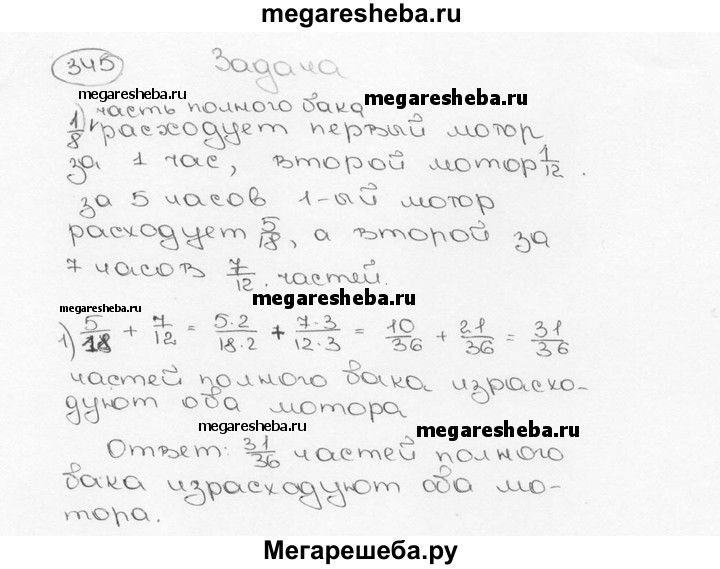 megaresheba.ru
345 Задача
megaresheba.ru
1) часть полного бака megaresheba.ru
1/8 расходует первый мотор
за 1 час, второй мотор 1/12.
за 5 часов 1-ый мотор
расходует 5/18, а второй за
7 часов 7/12 частей.
megaresheba.ru megaresheba.ru
1) 5/18 + 7/12 = 5·2/18·2 + 7·3/12·3 = 10/36 + 21/36 = 31/36
частей полного бака израсхо-
дуют оба мотора
megaresheba.ru megaresheba.ru
Ответ: 31/36 частей полного
бака израсходуют оба мо-
тора.
Мегарешеба.ру